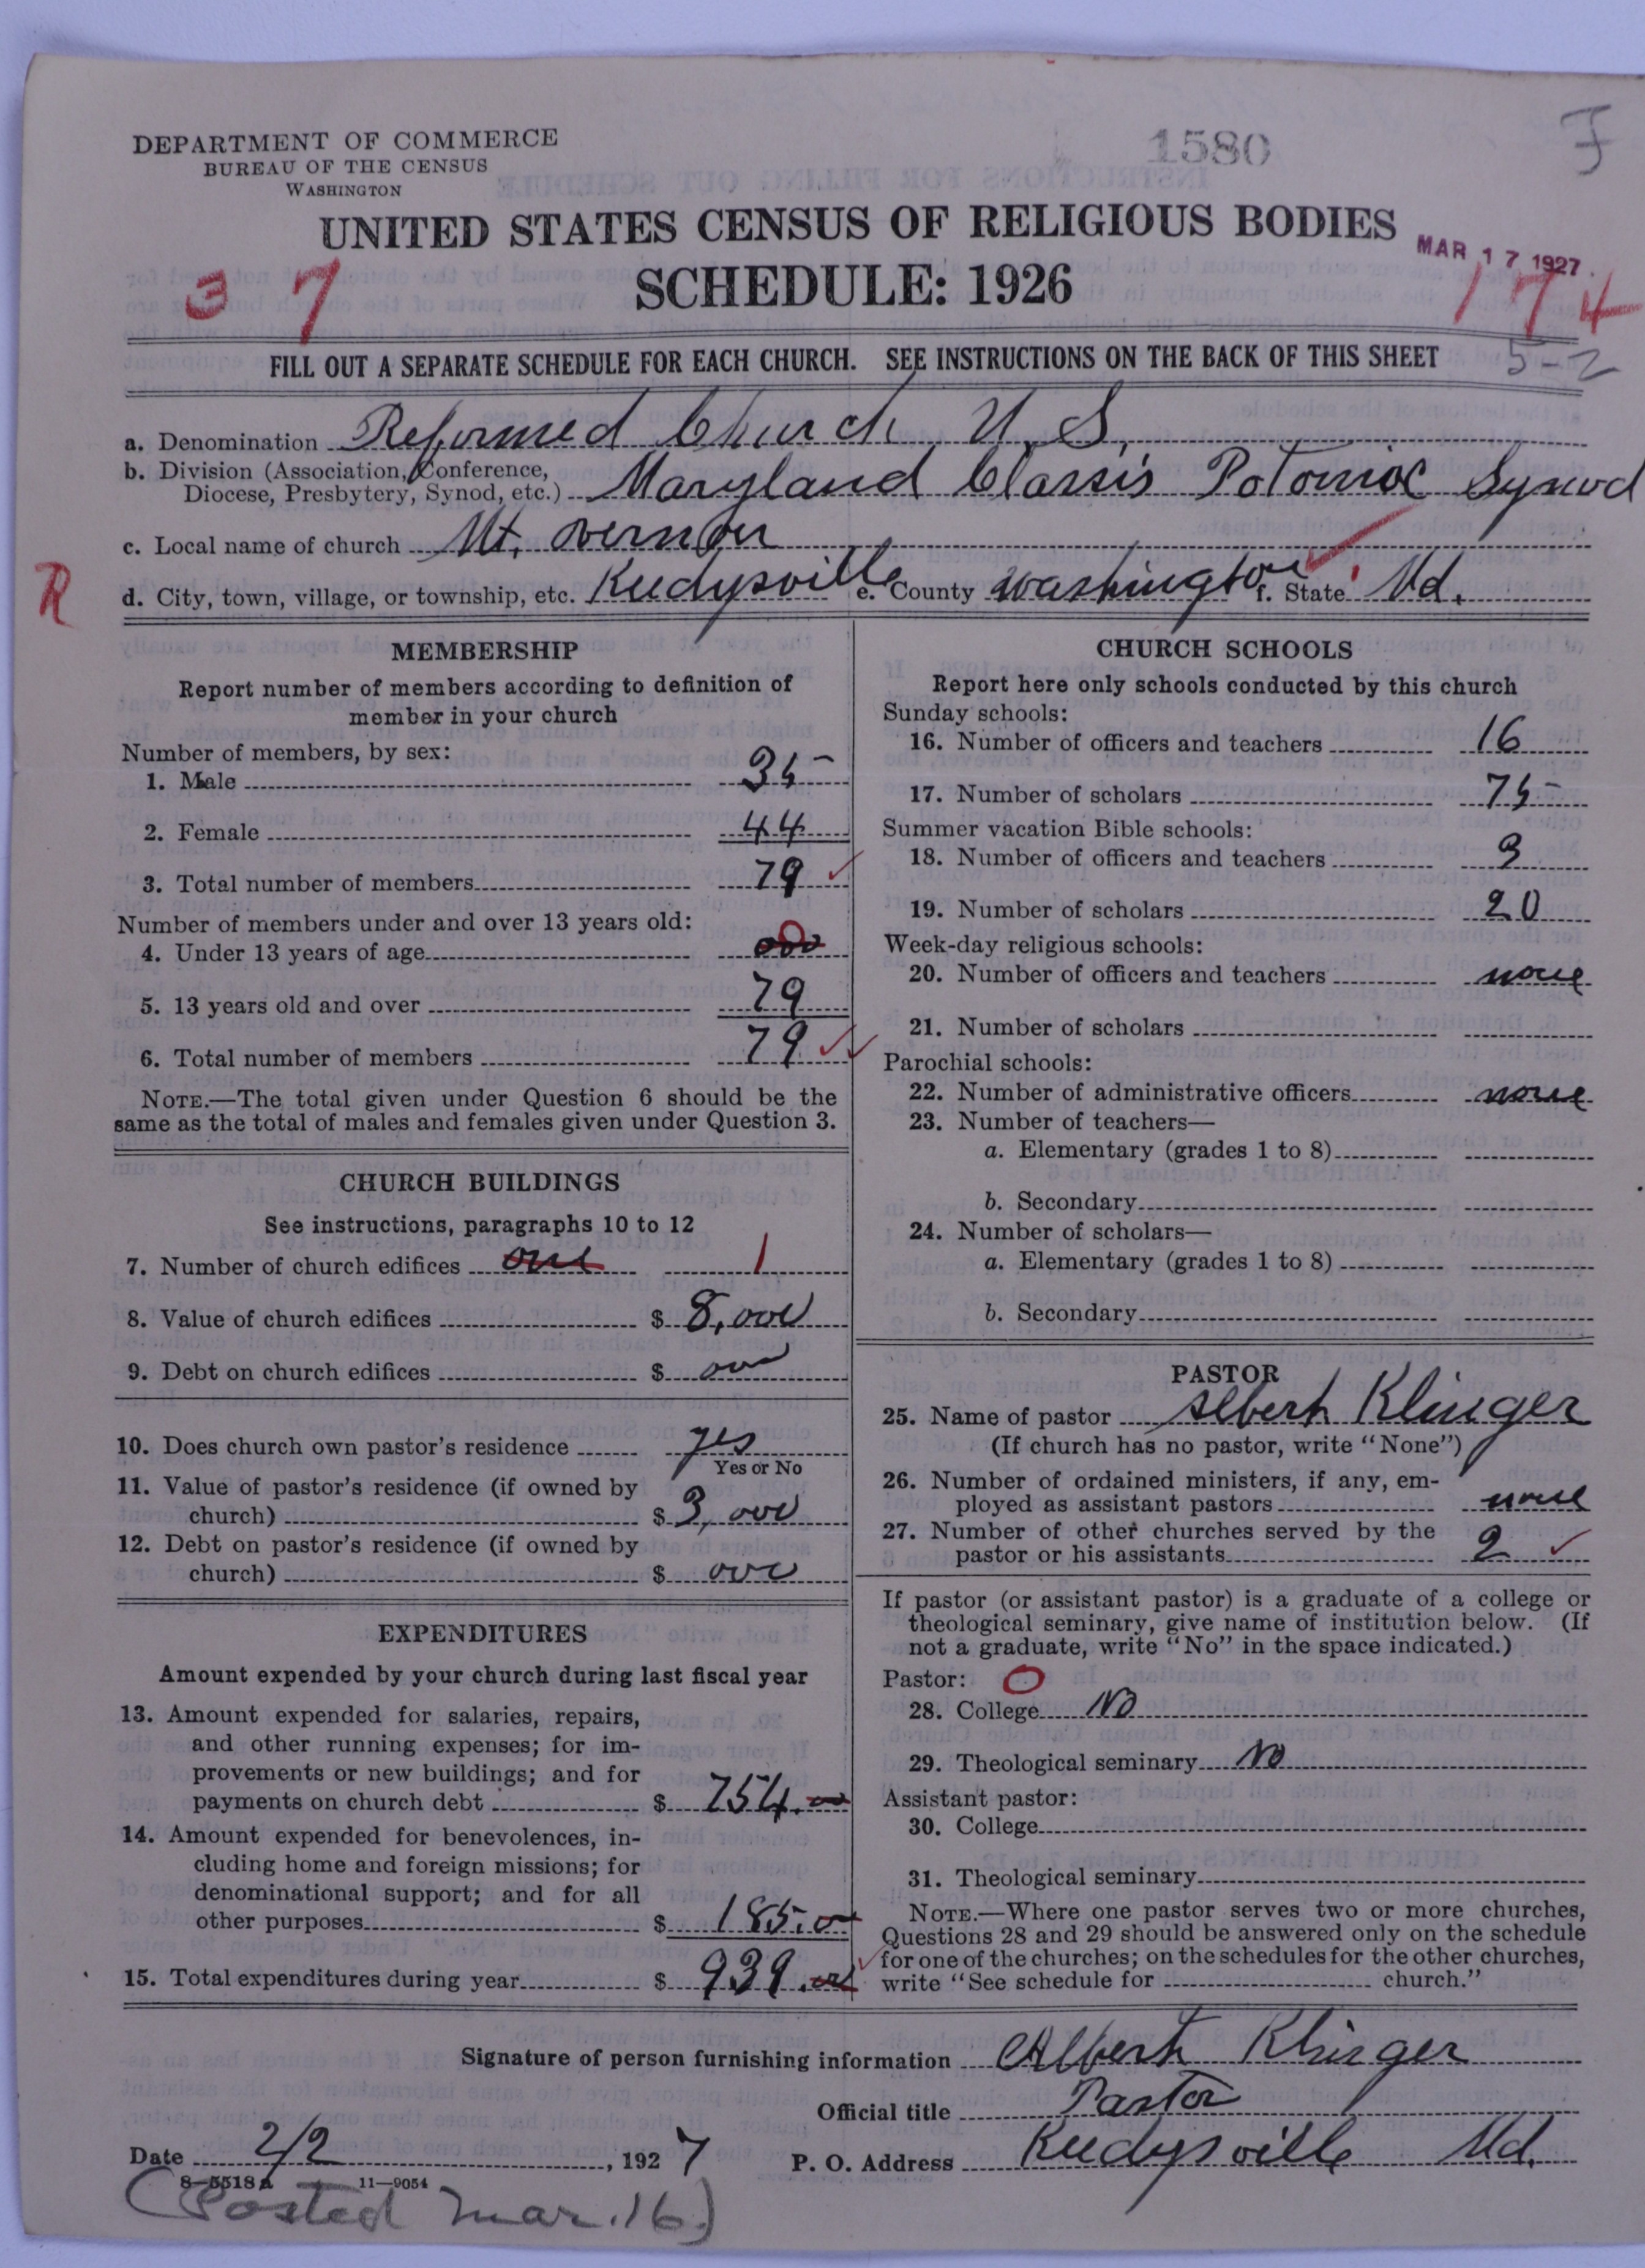 DEPARTMENT OF COMMERCE
BUREAU OF THE CENSUS
WASHINGTON
1580
F
UNITED STATES CENSUS OF RELIGIOUS BODIES
MAR 17 1927
3 7
SCHEDULE: 1926
174
FILL OUT A SEPARATE SCHEDULE FOR EACH CHURCH. SEE INSTRUCTIONS ON THE BACK OF THIS SHEET
5-2
a. Denomination Reformed Church U.S.
b. Division (Association, Conference,
Diocese, Presbytery, Synod, etc.) Maryland Classis Potomac Synod
c. Local name of church Mt. Vernon
R
d. City, town, village, or township, etc. Keedysville e. County Washington f. State Md.
MEMBERSHIP
Report number of members according to definition of
member in your church
Number of members, by sex:
1. Male 35
2. Female 44
3. Total number of members 79
Number of members under and over 13 years old:
4. Under 13 years of age 000 0
5. 13 years old and over 79
6. Total number of members 79
NOTE.—The total given under Question 6 should be the
same as the total of males and females given under Question 3.
CHURCH BUILDINGS
See instructions, paragraphs 10 to 12
7. Number of church edifices one 1
8. Value of church edifices $ 8,000
9. Debt on church edifices $ 000
10. Does church own pastor's residence yes
Yes or No
11. Value of pastor's residence (if owned by
church) $ 3,000
12. Debt on pastor's residence (if owned by
church) $ 000
EXPENDITURES
Amount expended by your church during last fiscal year
13. Amount expended for salaries, repairs,
and other running expenses; for im-
provements or new buildings; and for
payments on church debt $ 754.00
14. Amount expended for benevolences, in-
cluding home and foreign missions; for
denominational support; and for all
other purposes $ 185.00
15. Total expenditures during year $ 939.00
CHURCH SCHOOLS
Report here only schools conducted by this church
Sunday schools:
16. Number of officers and teachers 16
17. Number of scholars 75
Summer vacation Bible schools:
18. Number of officers and teachers 3
19. Number of scholars 20
Week-day religious schools:
20. Number of officers and teachers none
21. Number of scholars
Parochial schools:
22. Number of administrative officers none
23. Number of teachers—
a. Elementary (grades 1 to 8)
b. Secondary
24. Number of scholars—
a. Elementary (grades 1 to 8)
b. Secondary
PASTOR
25. Name of pastor Albert Klinger
(If church has no pastor, write "None")
26. Number of ordained ministers, if any, em-
ployed as assistant pastors none
27. Number of other churches served by the
pastor or his assistants 2
If pastor (or assistant pastor) is a graduate of a college or
theological seminary, give name of institution below. (If
not a graduate, write "No" in the space indicated.)
Pastor: 0
28. College No
29. Theological seminary No
Assistant pastor:
30. College
31. Theological seminary
NOTE.—Where one pastor serves two or more churches,
Questions 28 and 29 should be answered only on the schedule
for one of the churches; on the schedules for the other churches,
write "See schedule for church."
Signature of person furnishing information Albert Klinger
Official title Pastor
Date 2/2, 1927 P. O. Address Keedysville Md.
8-5518a 11-9054
(Posted Mar. 16)